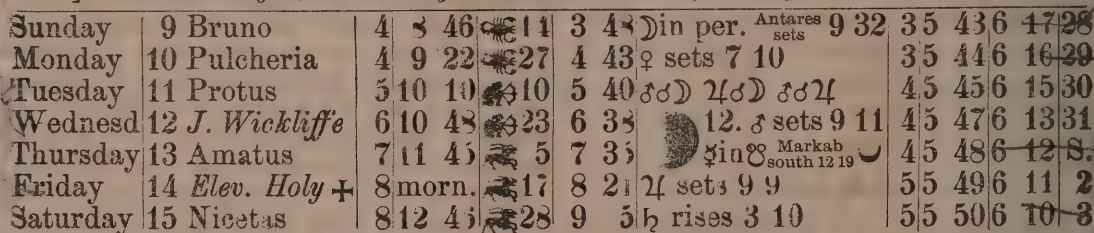 Sunday 9 Bruno 4 8 46 11 3 48 ☽ in per. Antares sets 9 32 3 5 43 6 17 28
Monday 10 Pulcheria 4 9 22 27 4 43 ♀ sets 7 10 3 5 44 6 16 29
Tuesday 11 Protus 5 10 10 10 5 40 ♂☌☽ ♃☌☽ ♂☌♃ 4 5 45 6 15 30
Wednesd 12 J. Wickliffe 6 10 48 23 6 38 12. ♂ sets 9 11 4 5 47 6 13 31
Thursday 13 Amatus 7 11 45 5 7 35 ☿ in ☋ Markab south 12 19 4 5 48 6 12 S.
Friday 14 Elev. Holy + 8 morn. 17 8 21 ♃ sets 9 9 5 5 49 6 11 2
Saturday 15 Nicetas 8 12 45 28 9 5 ♄ rises 3 10 5 5 50 6 10 3